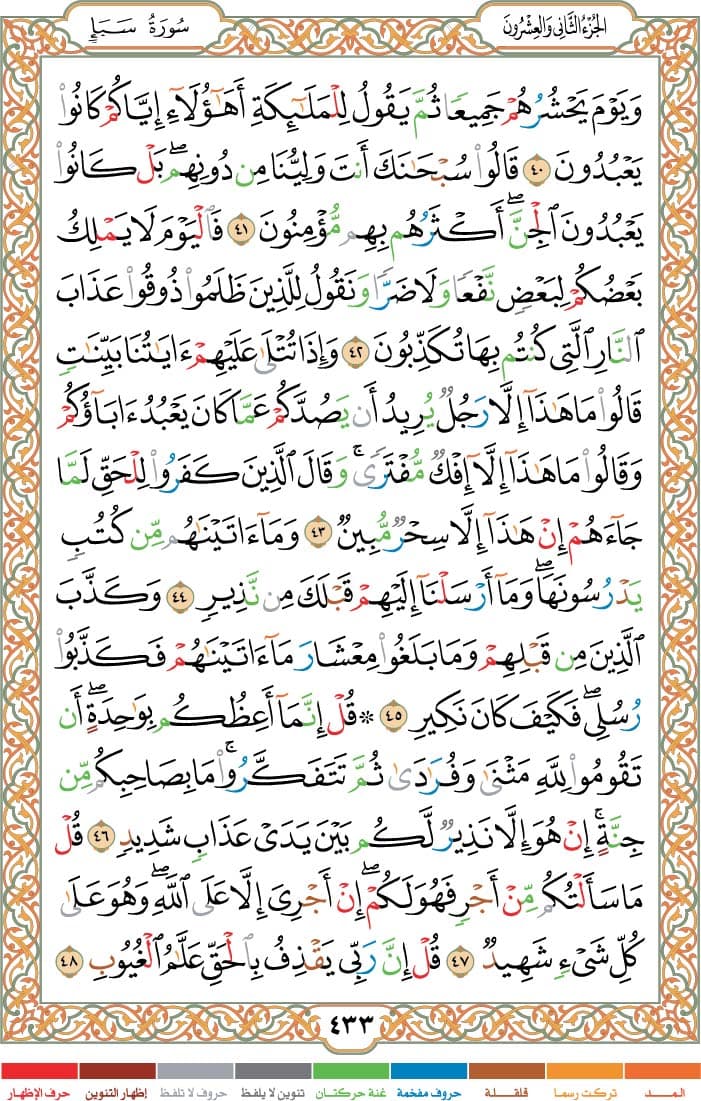 الجزء الثاني والعشرون
سورة سبإ
وَيَوْمَ يَحْشُرُهُمْ جَمِيعًا ثُمَّ يَقُولُ لِلْمَلَٰٓئِكَةِ أَهَٰٓؤُلَآءِ إِيَّاكُمْ كَانُوا۟
يَعْبُدُونَ ٤٠ قَالُوا۟ سُبْحَٰنَكَ أَنتَ وَلِيُّنَا مِن دُونِهِم ۖ بَلْ كَانُوا۟
يَعْبُدُونَ ٱلْجِنَّ ۖ أَكْثَرُهُم بِهِم مُّؤْمِنُونَ ٤١ فَٱلْيَوْمَ لَا يَمْلِكُ
بَعْضُكُمْ لِبَعْضٍ نَّفْعًا وَلَا ضَرًّا وَنَقُولُ لِلَّذِينَ ظَلَمُوا۟ ذُوقُوا۟ عَذَابَ
ٱلنَّارِ ٱلَّتِى كُنتُم بِهَا تُكَذِّبُونَ ٤٢ وَإِذَا تُتْلَىٰ عَلَيْهِمْ ءَايَٰتُنَا بَيِّنَٰتٍ
قَالُوا۟ مَا هَٰذَآ إِلَّا رَجُلٌ يُرِيدُ أَن يَصُدَّكُمْ عَمَّا كَانَ يَعْبُدُ ءَابَآؤُكُمْ
وَقَالُوا۟ مَا هَٰذَآ إِلَّآ إِفْكٌ مُّفْتَرًى ۚ وَقَالَ ٱلَّذِينَ كَفَرُوا۟ لِلْحَقِّ لَمَّا
جَآءَهُمْ إِنْ هَٰذَآ إِلَّا سِحْرٌ مُّبِينٌ ٤٣ وَمَآ ءَاتَيْنَٰهُم مِّن كُتُبٍ
يَدْرُسُونَهَا ۖ وَمَآ أَرْسَلْنَآ إِلَيْهِمْ قَبْلَكَ مِن نَّذِيرٍ ٤٤ وَكَذَّبَ
ٱلَّذِينَ مِن قَبْلِهِمْ وَمَا بَلَغُوا۟ مِعْشَارَ مَآ ءَاتَيْنَٰهُمْ فَكَذَّبُوا۟
رُسُلِى ۖ فَكَيْفَ كَانَ نَكِيرِ ٤٥ ۞ قُلْ إِنَّمَآ أَعِظُكُم بِوَٰحِدَةٍ ۖ أَن
تَقُومُوا۟ لِلَّهِ مَثْنَىٰ وَفُرَٰدَىٰ ثُمَّ تَتَفَكَّرُوا۟ ۚ مَا بِصَاحِبِكُم مِّن
جِنَّةٍ ۚ إِنْ هُوَ إِلَّا نَذِيرٌ لَّكُم بَيْنَ يَدَىْ عَذَابٍ شَدِيدٍ ٤٦ قُلْ
مَا سَأَلْتُكُم مِّنْ أَجْرٍ فَهُوَ لَكُمْ ۖ إِنْ أَجْرِىَ إِلَّا عَلَى ٱللَّهِ ۖ وَهُوَ عَلَىٰ
كُلِّ شَىْءٍ شَهِيدٌ ٤٧ قُلْ إِنَّ رَبِّى يَقْذِفُ بِٱلْحَقِّ عَلَّٰمُ ٱلْغُيُوبِ ٤٨
٤٣٣
المــد تركت رسما قلقلة حروف مفخمة غنة حركتان تنوين لا يلفظ حروف لا تلفظ إظهار التنوين حرف الإظهار